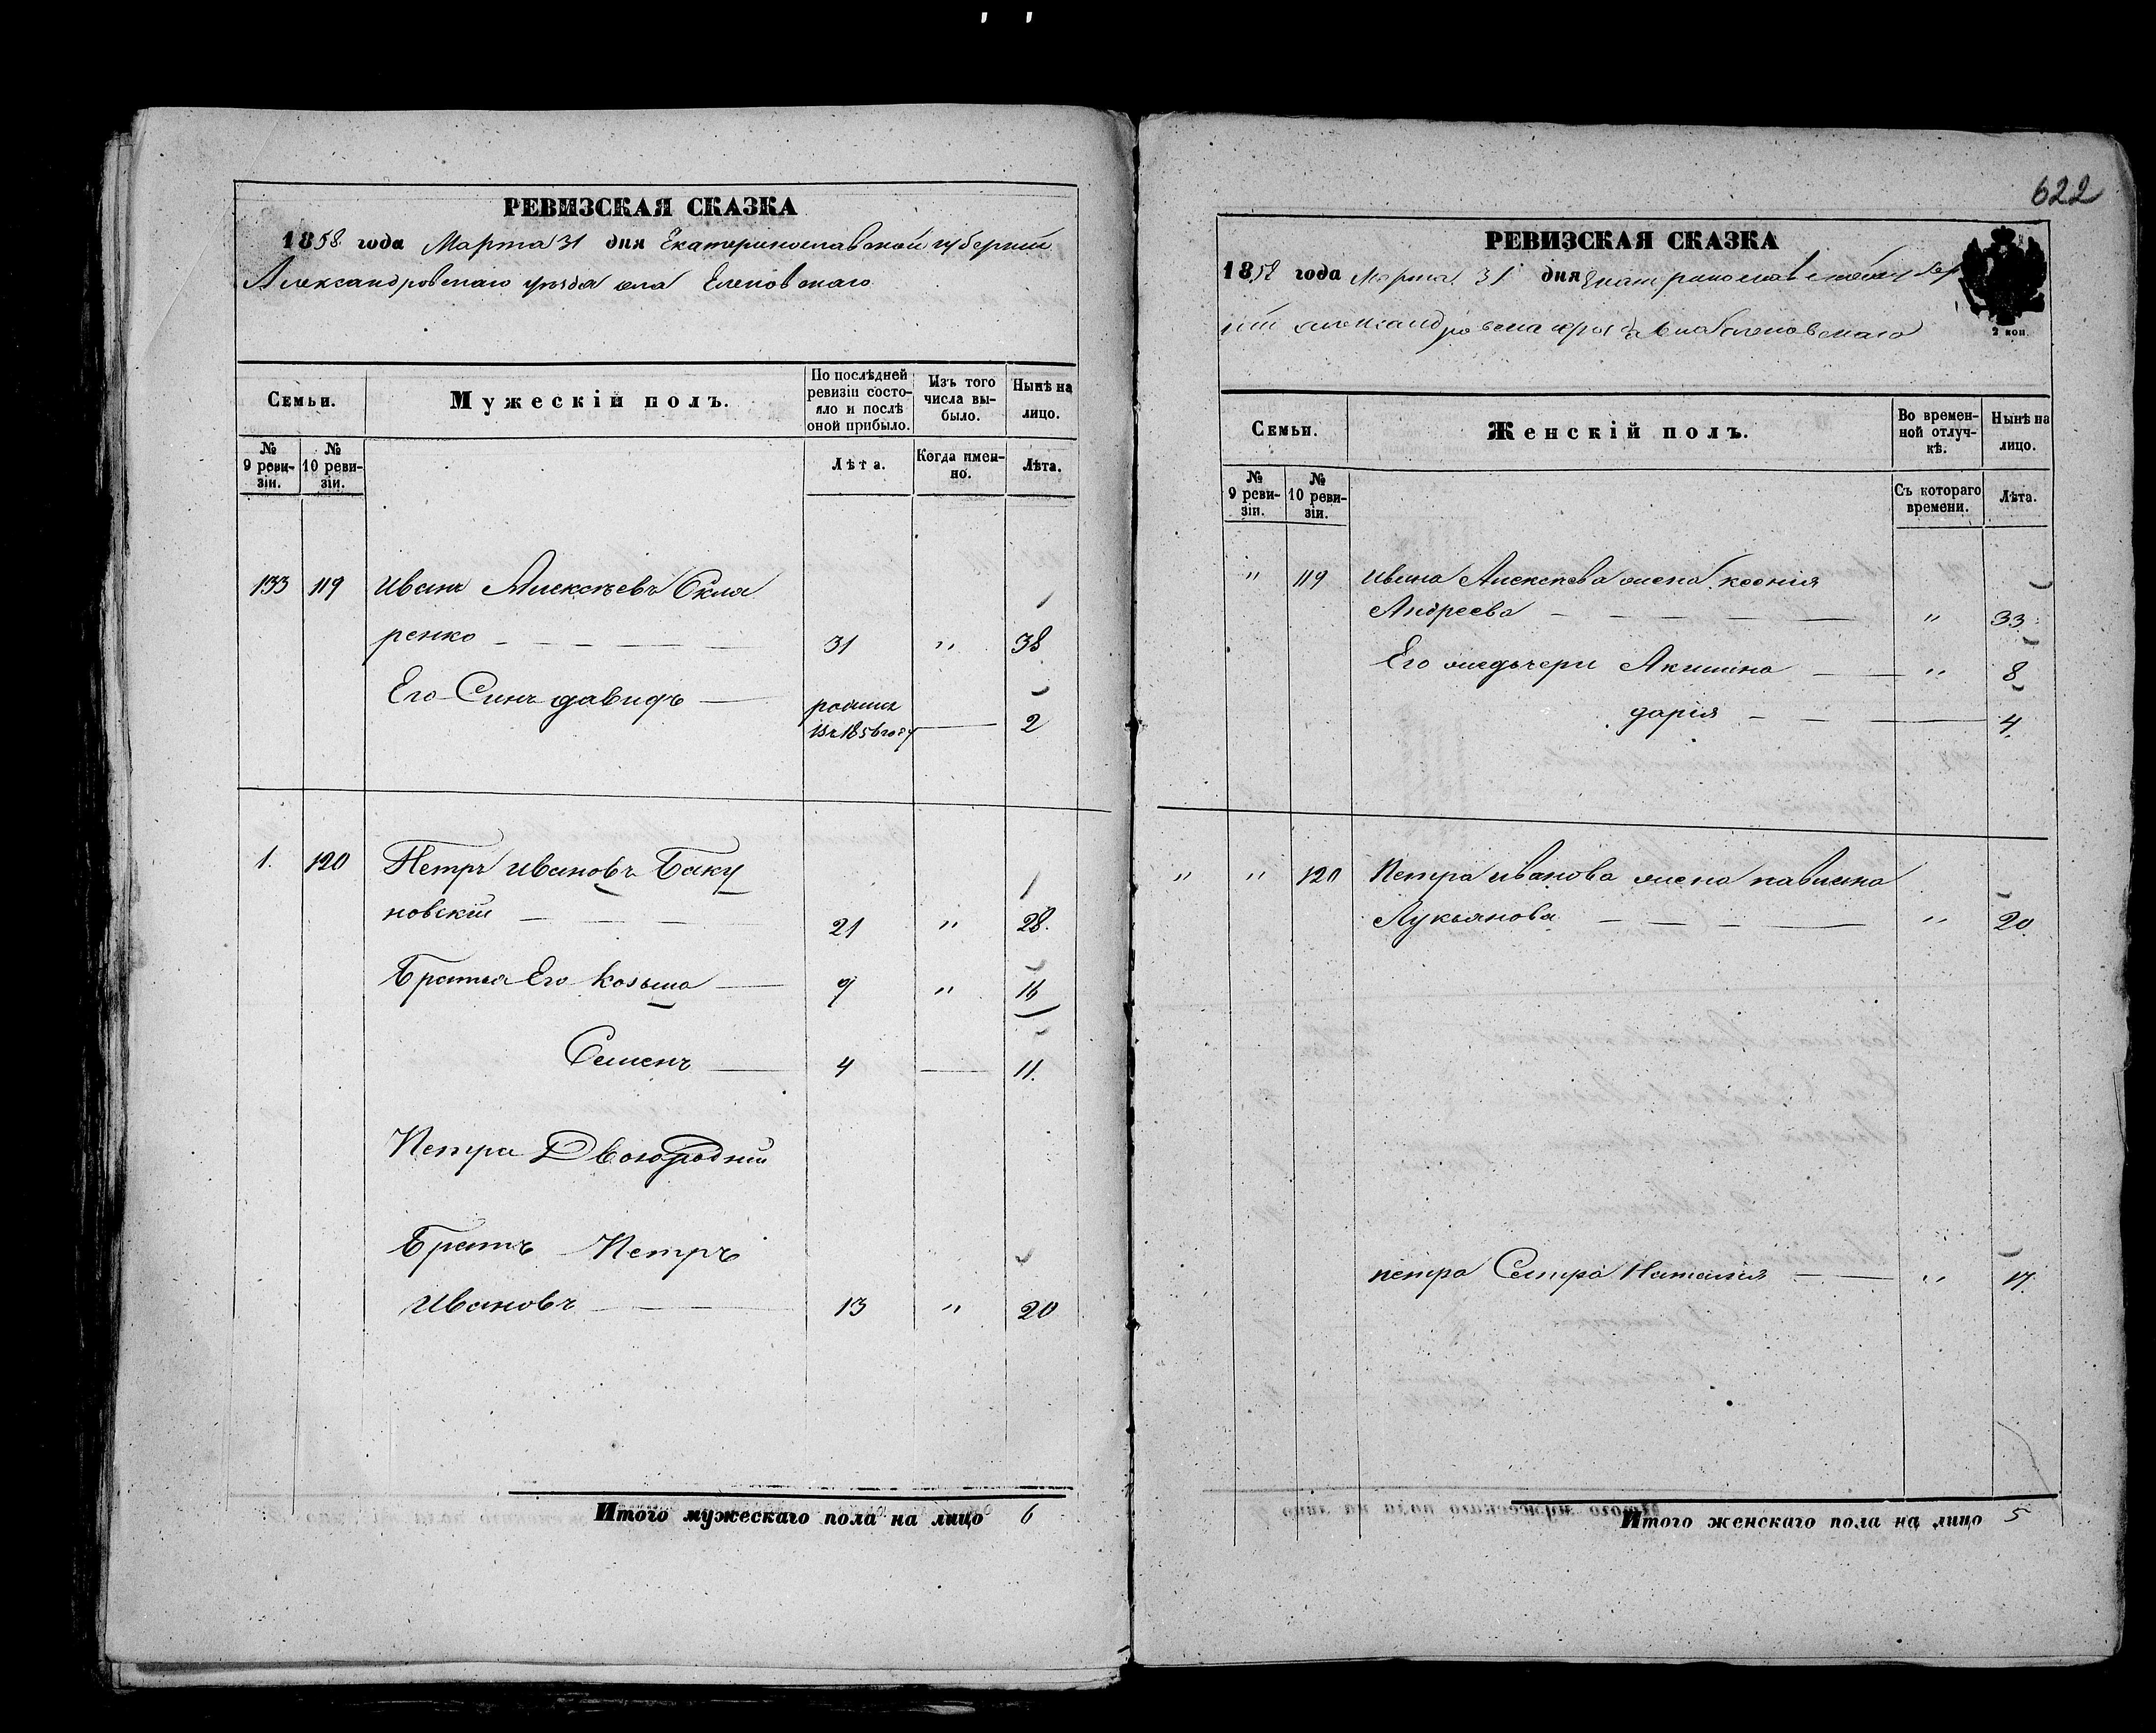 622
РЕВИЗСКАЯ СКАЗКА
1858 года Марта 31 дня Екатеринославской губернии
Александровскаго уезда села Еленовскаго
Семьи.
Мужескій полъ.
По послѣдней ревизіи состояло и послѣ оной прибыло.
Изъ того числа выбыло.
Нынѣ на лицо.
№ 9 ревизіи.
№ 10 ревизіи.
Лѣта.
Когда именно.
Лѣта.
133 119 Иванъ Алексѣевъ Скля
ренко 31 " 38
Его Синъ давидъ родился
въ 1856 году 2
1. 120 Петръ Ивановъ Баку
новскій 21 " 28.
Братья Его Козьма 9 " 16
Семенъ 4 11.
Петра Двоюродний
Братъ Петръ
Ивановъ 13 " 20
Итого мужескаго пола на лицо 6
РЕВИЗСКАЯ СКАЗКА
1858 года Марта 31 дня
2 коп.
Семьи.
Женскій полъ.
Во временной отлучкѣ.
Нынѣ на лицо.
№ 9 ревизіи.
№ 10 ревизіи.
Съ котораго времени.
Лѣта.
" 119 Ивана Алексеева жена Ксения
Андреева " 33
Его же дочери Акилина " 8
дарія 4.
" " 120 Петра Иванова жена павлина
Лукьянова " 20
петра Сестра Наталия " 17.
Итого женскаго пола на лицо 5